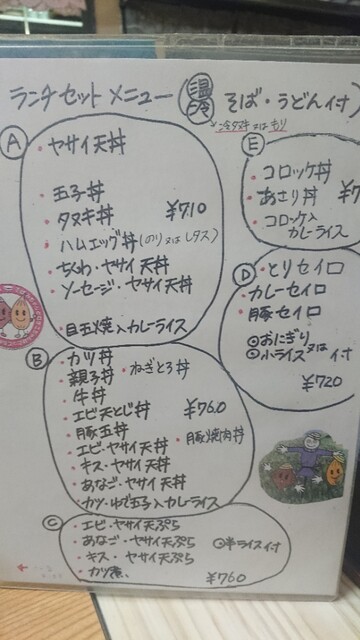 ランチセット メニュー (温冷 そば・うどん付)
冷タヌキ又はもり
A
・ヤサイ天丼
・玉子丼
・タヌキ丼 ¥710
・ハムエッグ丼(のり又はレタス)
・ちくわ・ヤサイ天丼
・ソーセージ・ヤサイ天丼
・目玉焼入カレーライス
B
・カツ丼
・ねぎとろ丼
・親子丼
・牛丼
・エビ天とじ丼 ¥760
・豚玉丼
・豚焼肉丼
・エビ・ヤサイ天丼
・キス・ヤサイ天丼
・あなご・ヤサイ天丼
・カツ・ゆで玉子入カレーライス
C
・エビ・ヤサイ天ぷら
・あなご・ヤサイ天ぷら
・キス・ヤサイ天ぷら
・カツ煮
⊙半ライス付
¥760
E
・コロッケ丼
・あさり丼 ¥7
・コロッケ入
カレーライス
D
・とりセイロ
・カレーセイロ
・豚セイロ
⊙おにぎり
⊙小ライス又は付
¥720